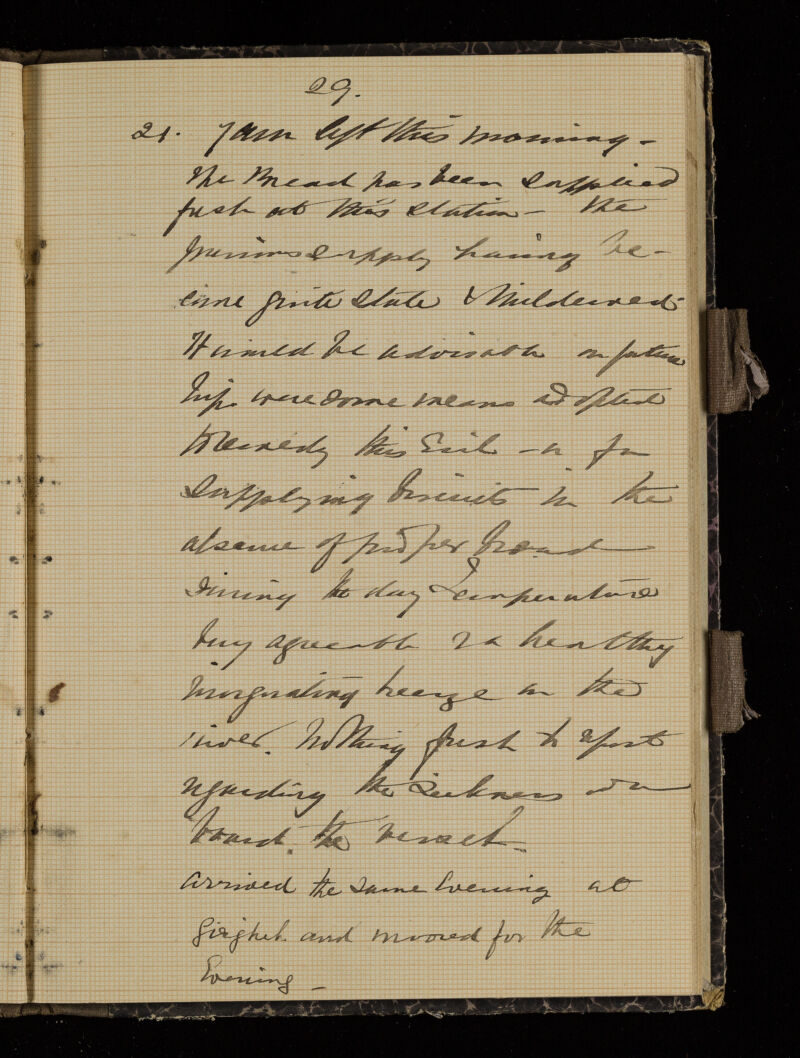 29.
21. 7am left this morning -
the Bread has been supplied
fresh at this station - the
previous supply having be-
come quite stale & Mildewed -
It would be advisable on future
trips were some means adopted
to remedy this Evil - or for
supplying biscuits in the
absence of proper bread
During the day Temperature
very agreeable & a healthy
invigorating breeze on the
river. Nothing fresh to report
regarding the Sickness on
board. the vessel -
arrived the same Evening at
Girgheh and moored for the
Evening -